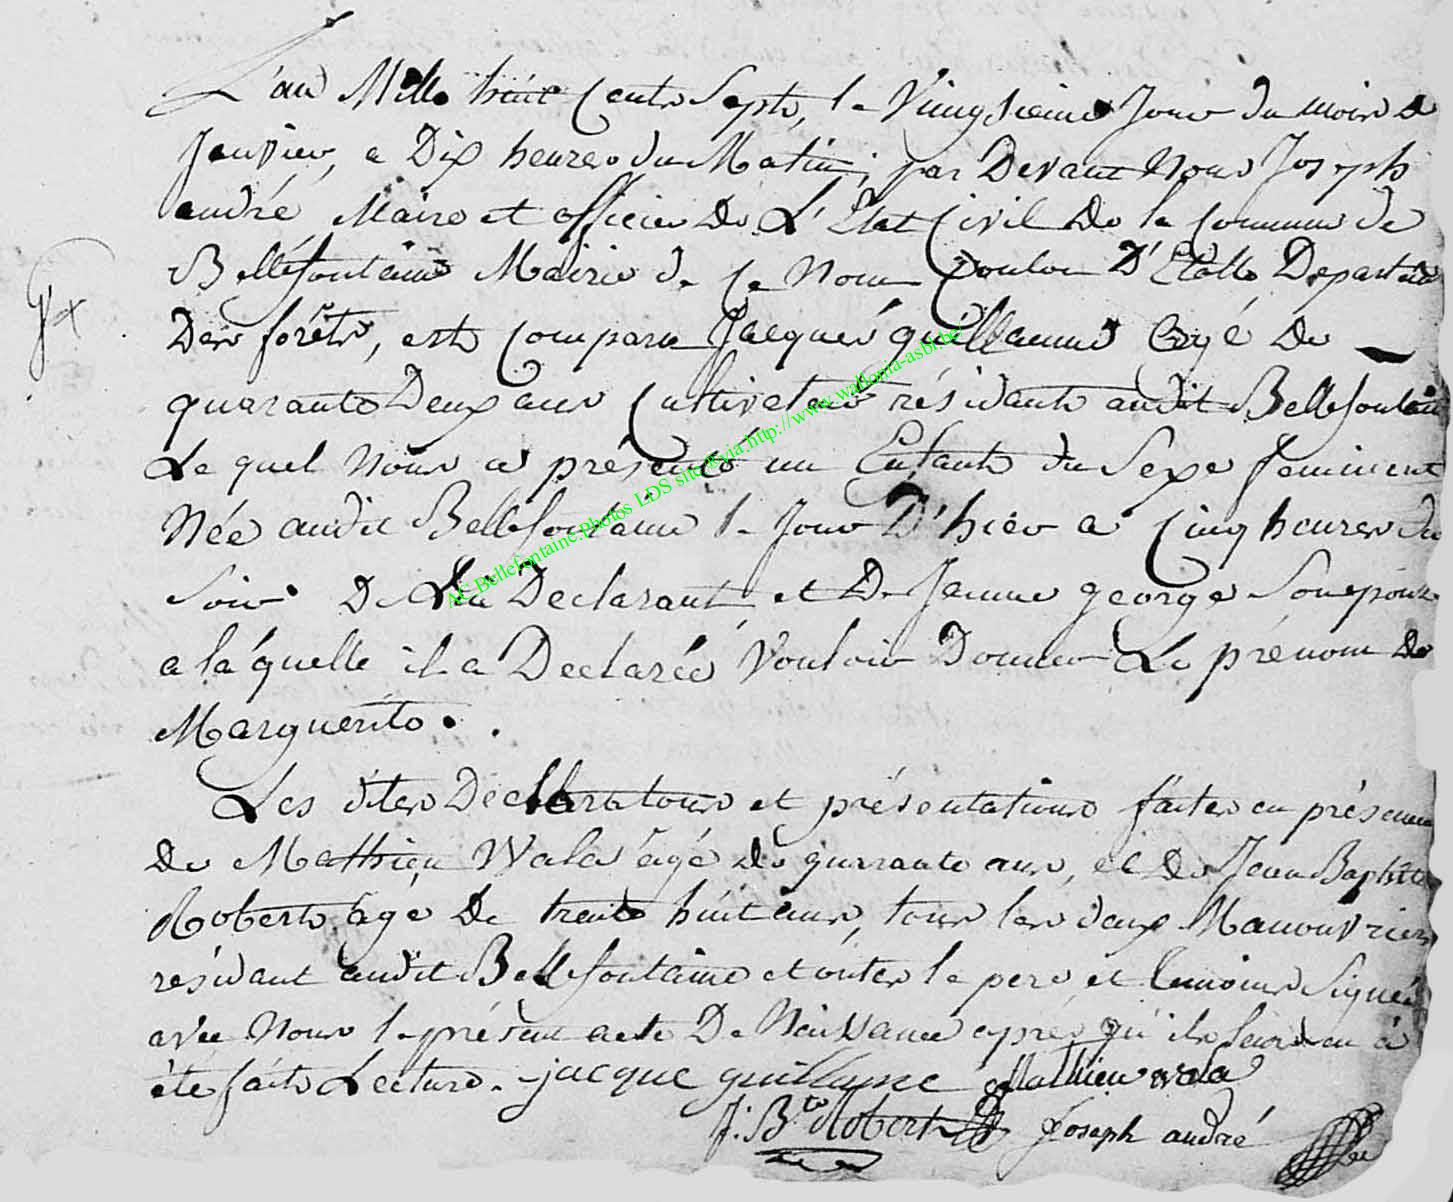 L'an Mille huit Cents Septs, le Vingsieme Jour du mois de
Janvier, a Dix heures du Matin, par Devant Nous Joseph
andré Maire et officier De L'Etat Civil De la Commune de
Bellefontaine Mairie de Ce Nom Canton D'Etalle Departt des
Des forêts, ests Comparu Jacques guillaume agé De
quarante Deux ans Cultivateur résidants audit Bellefontaine
Le quel Nous a présenté un Enfants du Sexe feminent
Née audit Bellefontaine le Jour D'hiér a Cinq heures du
Soir De Lui Declarant et De Jeanne george Son epouse
a laquelle il a Declareé Vouloir Donner Le prénom De
Marguerite.
Les dites Déclarations et présentations faites en présence
De Mathieu Wala agé de quarrante ans, et De Jean Baptiste
Roberts agé De trente huit ans, tous les deux Manouvriers
résidant audit Bellefontaine et ontes le pere et temoins Signés
avec Nous le présent acte De Naissance apres qu'ils leurs en à
éte faits Lecture. jacque guillame Mathieu wala
J: Bte Robert Joseph andré
AC Bellefontaine.Photos LDS site Rvia http://www.wallonia-asbl.be/